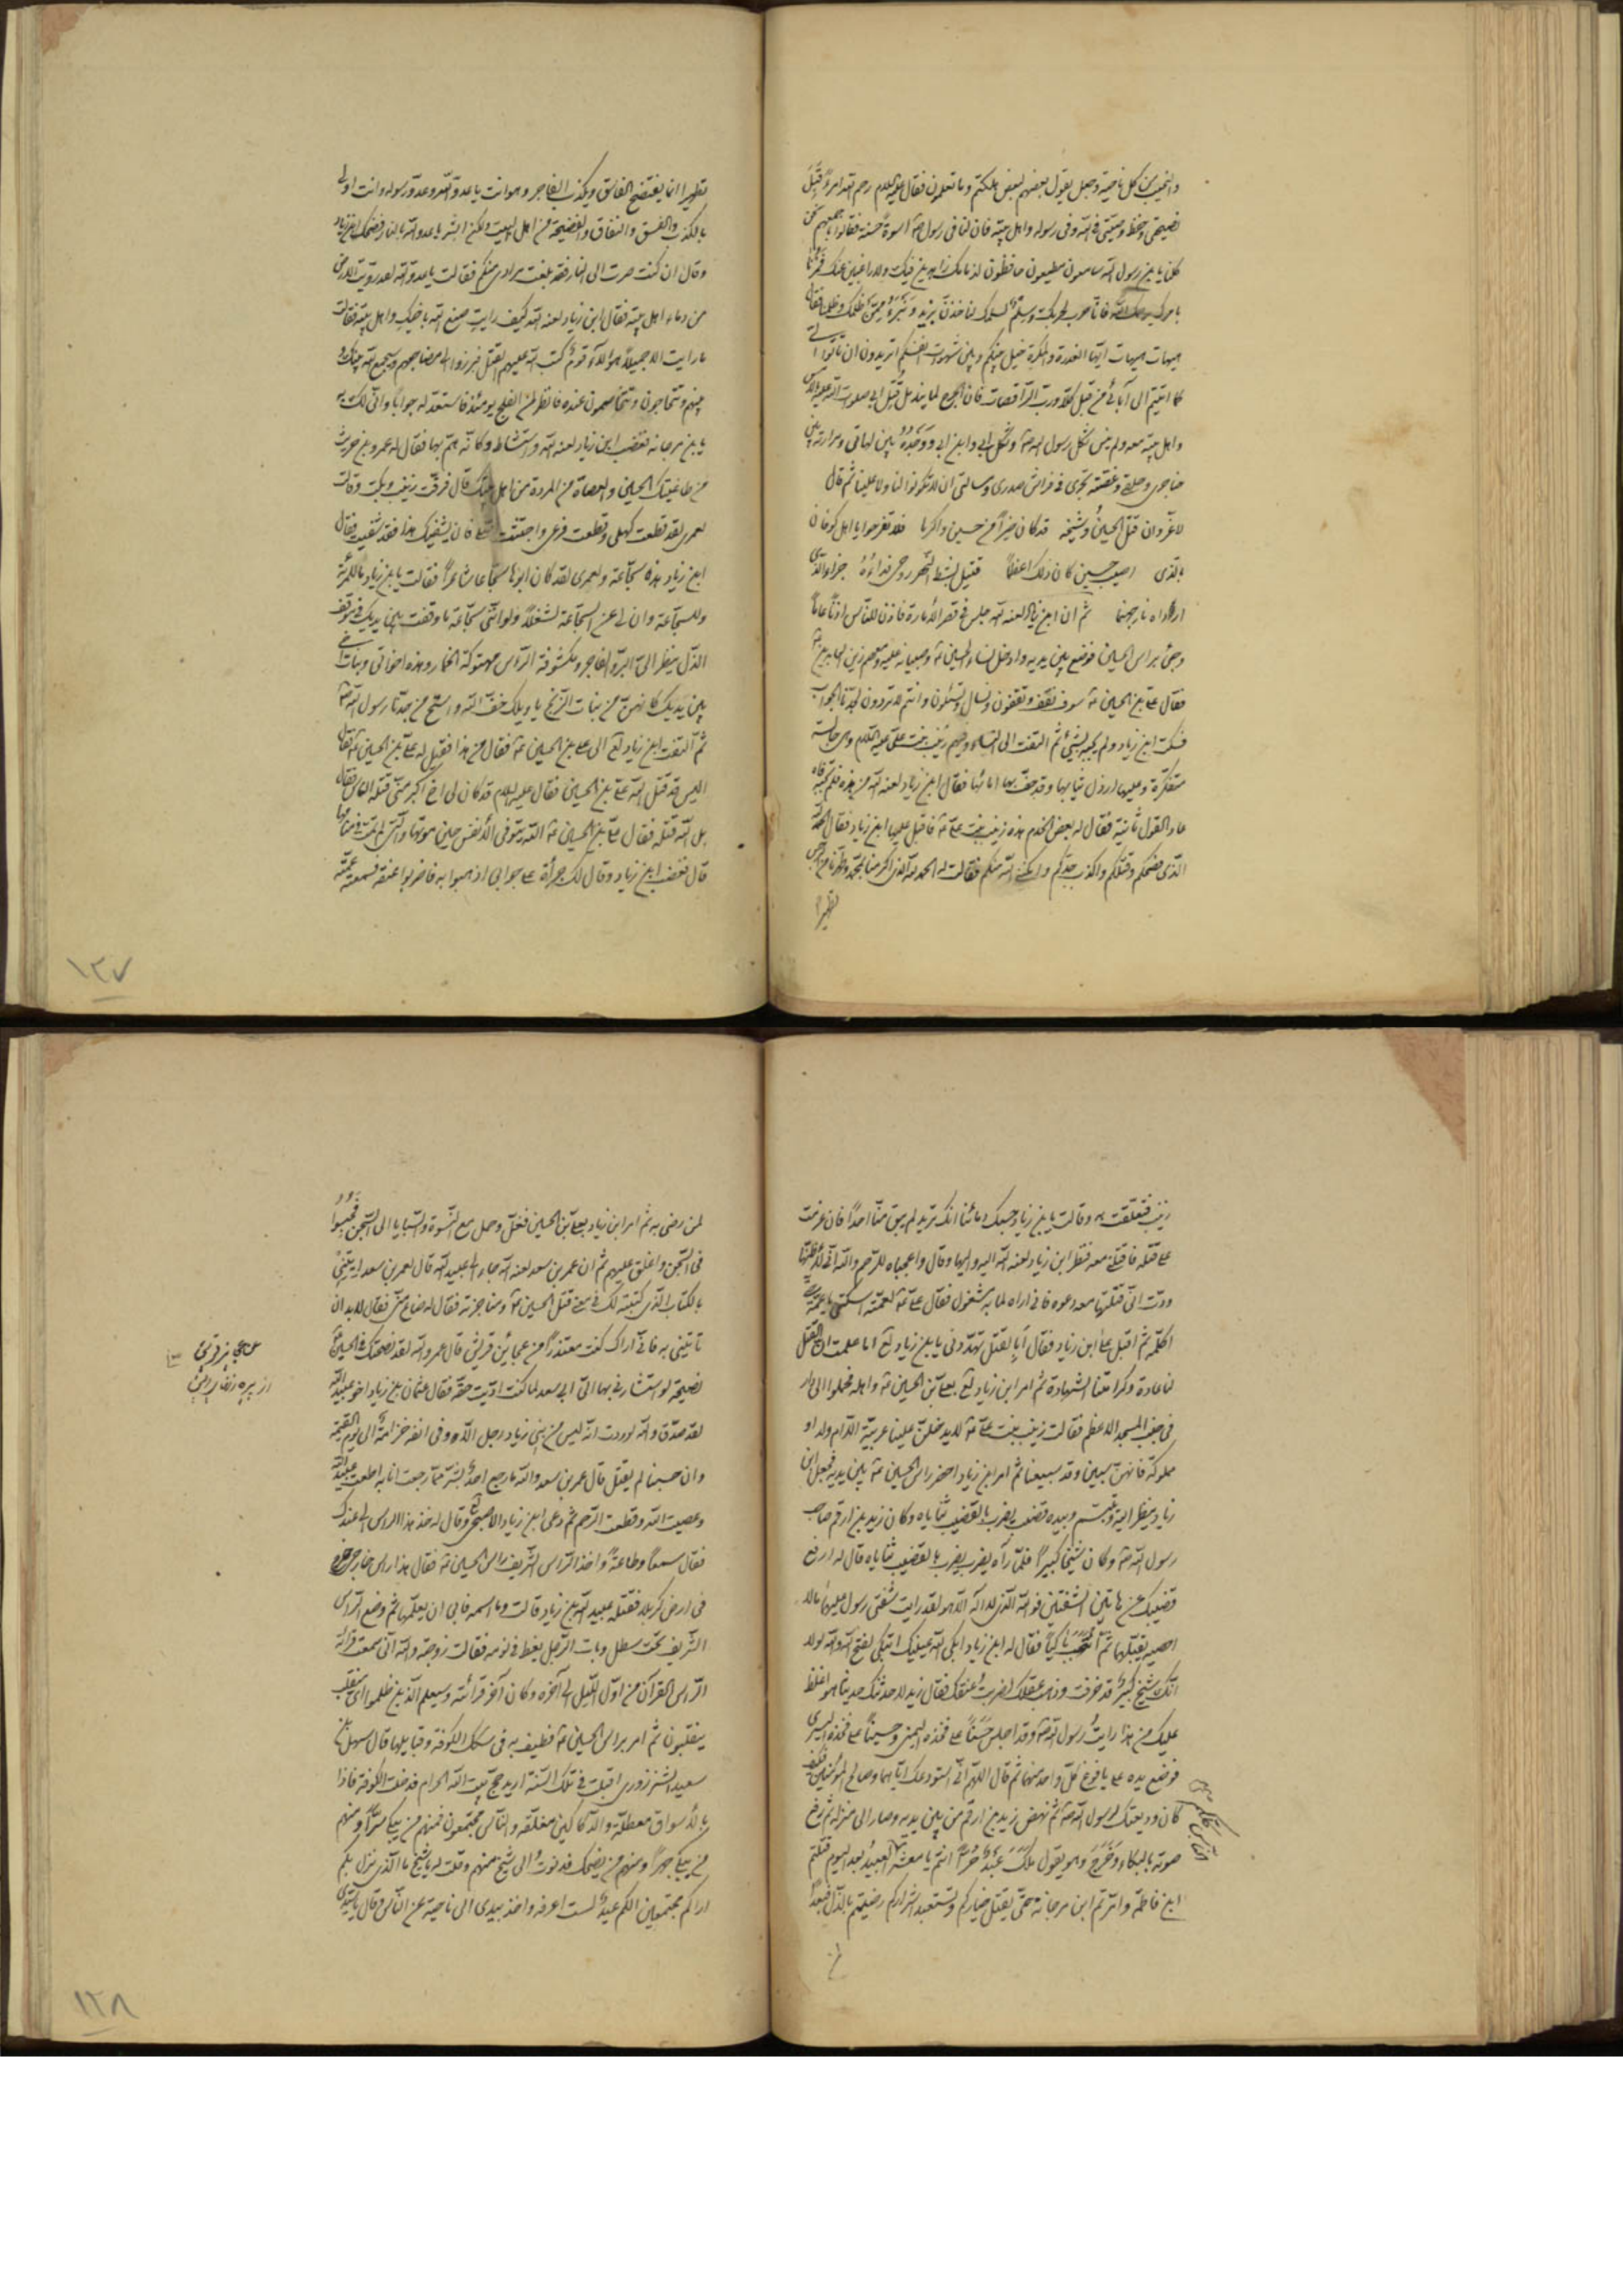 والنحيب من كل ناحية وجعل يقول بعضهم لبعض هلكتم وما تعلمون فقال عليه السلام رحم الله امرءً قَبِلَ
نصيحتي وحفظ وصيتي في الله وفي رسوله واهل بيته فان لنا في رسول الله اسوة حسنة فقالوا باجمعهم نحن
كلنا يا بن رسول الله سامعون مطيعون حافظون لذمامك غير زاهدين فيك ولا راغبين عنك فمُرنا
بامرك يرحمك الله فانا حرب لحربك وسلم لسلمك لناخذن يزيد ونبرء ممن ظلمك وظلمنا فقال
هيهات هيهات ايها الغدرة والمكرة حيل بينكم وبين شهوات انفسكم اتريدون ان تاتوا الي
كما اتيتم الى آبائي من قبل كلا ورب الراقصات فان الجرح لما يندمل قُتِل ابي صلوات الله عليه بالامس
واهل بيته معه ولم ينس ثكل رسول الله وثكل ابي وابن ابي ووَجْدُهُ بين لهاتي ومرارته بين
حناجري وحلقي وغصته تجري في فراش صدري ومسالتي ان لا تكونوا لنا ولا علينا ثم قال
لا غرو ان قتل الحسينُ وشيخه قد كان خيراً من حسين واكرما فلا تفرحوا يا اهل كوفان
بالذي اصيب حسين كان ذلك اعظما قتيل بشط النهر روحي فداءُهُ جزاء الذي
ارداه نار جهنما ثم ان ابن زياد لعنه الله جلس في قصر الامارة فاذن للناس اذناً عاماً
وجئ براس الحسين فوضع بين يديه وادخل نساء الحسين وصبيانه عليه ومعهم زين العابدين
فقال علي بن الحسين سوف نقف وتقفون ونسال وتسئلون وانتم لا تردون لجدنا الجواب
فسكت ابن زياد ولم يجبه بشيء ثم التفت الى النساء وفيهم زينب بنت علي عليه السلام وهي جالسة
متنكرة وعليها ارذل ثيابها وقد حفت بها امائها فقال ابن زياد لعنه الله من هذه فلم تجبه
عاد القول ثانية فقال له بعض الخدم هذه زينب بنت علي فاقبل عليها ابن زياد فقال الحمد لله
الذي فضحكم وقتلكم واكذب جدكم وامكن الله منكم فقالت له الحمد لله الذي اكرمنا بمحمد وطهرنا من الرجس
تطهيرا
تطهيرا انما يفتضح الفاسق ويكذب الفاجر وهو انت يا عدو الله وعدو رسوله وانت اولى
بالكذب والفسق والنفاق والفضيحة من اهل البيت ولكن ابشر يا عدو الله بالنار فضحك ابن زياد
وقال ان كنت صرت الى النار فقد بلغت مرادي منكم فقالت يا عدو الله لقد رويت الارض
من دماء اهل بيته فقال ابن زياد لعنه الله كيف رايت صنع الله باخيك واهل بيته فقالت
ما رايت الا جميلاً هؤلاء قوم كتب الله عليهم القتل فبرزوا الى مضاجعهم وسيجمع الله بينك و
بينهم وتتحاجون وتتخاصمون عنده فانظر لمن الفلج يومئذ فاستعد له جواباً واني لك به
يا بن مرجانه فغضب ابن زياد لعنه الله واستشاط وكانه هم بها فقال له عمرو بن حريث
من طاغيتك الحسين والعصاة من المردة من اهل بيتك قال فرقّت زينب وبكت وقالت
لعمري لقد قطعت كهلي وقطعت فرعي واجتثثت اصلي فان يشفيك هذا فقد شفيت فقال
ابن زياد هذه سجاعة ولعمري لقد كان ابوها سجاعا شاعراً فقالت يا بن زياد ما للمرئة
وللسجاعة وان لي عن السجاعة لشغلاً ولو انني سجاعة ما وقفت بين يديك في موقف
الذل ينظر الي البر والفاجر ومكشوفة الراس مهتوكة الخمار وهذه اخواتي وبنات اخي
بين يديك كانهن من بنات الزنج يا ويلك خف الله واستح من جدنا رسول الله
ثم التفت ابن زياد الى علي بن الحسين فقال من هذا فقيل له علي بن الحسين فقال
اليس قد قتل الله علي بن الحسين فقال عليه السلام قد كان لي اخ اكبر مني قتله الناس فقال
بل الله قتله فقال علي بن الحسين الله يتوفى الانفس حين موتها والتي لم تمت في منامها
قال فغضب ابن زياد وقال لك جرأة على جوابي اذهبوا به فاضربوا عنقه فسمعت عمته
١٢٧
زينب فتعلقت به وقالت يا بن زياد حسبك دمائنا انك تريد لم يبق منا احداً فان عزمت
على قتله فاقتلني معه فنظر ابن زياد لعنه الله اليه واليها وقال واعجباه للرحم والله اني لاظنها
ودّت اني قتلتها معه دعوه فاني اراه لما به مشغول فقال علي لعمته اسكتي يا عمة
اكلمه ثم اقبل على ابن زياد فقال أبِالقتل تهددني يا بن زياد اما علمت ان القتل
لنا عادة وكرامتنا الشهادة ثم امر ابن زياد بعلي بن الحسين واهله فحملوا الى دار
في جنب المسجد الاعظم فقالت زينب بنت علي لا يدخلن علينا عربية الا ام ولد او
مملوكة فانهن سبين وقد سبينا ثم امر ابن زياد احضر راس الحسين بين يديه فجعل ابن
زياد ينظر اليه ويتبسم وبيده قضيب يضرب بالقضيب ثناياه وكان زيد بن ارقم صاحب
رسول الله وكان شيخا كبيراً فلما رآه يضرب يضرب بالقضيب ثناياه قال له ارفع
قضيبك عن هاتين الشفتين فوالله الذي لا اله الا هو لقد رايت شفتي رسول عليهما ما لا
احصيه يقبلهما ثم انتحب باكياً فقال له ابن زياد ابكى الله عينيك اتبكي لفتح الله والله لولا
انك شيخ كبير قد خرفت وذهب عقلك لضربت عنقك فقال زيد لاحدثنك حديثا هو اغلظ
عليك من هذا رايتُ رسول الله وقد اجلس حَسَناً على فخذه اليمنى وحسيناً على فخذه اليسرى
فوضع يده على يافوخ كل واحد منهما ثم قال اللهم اني استودعك اياهما وصالح المؤمنين فكيف
كان وديعتك لرسول الله ثم نهض زيد بن ارقم من بين يديه وصار الى منزله ثم رفع
صوته بالبكاء وخَرَجَ وهو يقول ملك عَبْدٌ حُراً انتم يا معشر العبيد بعد اليوم قتلتم
ابن فاطمة وامّرتم ابن مرجانة حتى يقتل خياركم ويستعبد اشراركم رضيتم بالذل فبُعداً
لمن
لمن رضي به ثم امر ابن زياد بعلي بن الحسين فغلّ وحمل مع النسوة والسبايا الى السجن فحُبِسُوا
في السجن واغلق عليهم ثم ان عمر بن سعد لعنه الله جاء الى عبيد الله قال لعمر بن سعد ايتني
بالكتاب الذي كتبته لك في معنى قتل الحسين ومناجزته فقال له ضاع مني فقال لا بد ان
تاتيني به فاني اراك كنت معتذراً من عجائز قريش قال عمر والله لقد نصحتك في الحسين
نصيحة لو استشارني بها ابي سعد لما كنت اديت حقه فقال عثمان بن زياد اخو عبيد الله
لقد صدق والله لوددت انه ليس من بني زياد رجل الا وفي انفه خزامة الى يوم القيمة
وان حسينا لم يقتل قال عمر بن سعد والله ما رجع احد بشر مما رجعت انا به اطعت عبيد الله
وعصيت الله وقطعت الرحم ثم دعى ابن زياد الاصبحي وقال له خذ هذا الراس الى عندك
فقال سمعاً وطاعةً واخذ الراس الشريف راس الحسين فقال هذا راس خارجي خرج
في ارض كربلا فقتله عبيد الله بن زياد قالت وما اسمه فابى ان يعلمها ثم وضع الراس
الشريف تحت سطل وبات الرجل يغط في نومه فقالت زوجته والله اني سمعت قرائة
الراس القرآن من اول الليل الى آخره وكان آخر قرائته وسيعلم الذين ظلموا اي منقلب
ينقلبون ثم امر براس الحسين فطيف به في سكك الكوفة وقبايلها قال سهل بن
سعيد الشهرزوري اقبلت في تلك السنة اريد حج بيت الله الحرام فدخلت الكوفة فاذا
بالاسواق معطلة والدكاكين مغلقة والناس مجتمعون فمنهم من يبكي سراً ومنهم
من يبكي جهراً ومنهم من يضحك فدنوتُ الى شيخ منهم وقلت له يا شيخ ما الذي نزل بكم
اراكم مجتمعين الكم عيد لست اعرفه واخذ بيدي الى ناحية عن الناس وقال يا سيدي
١٢٨